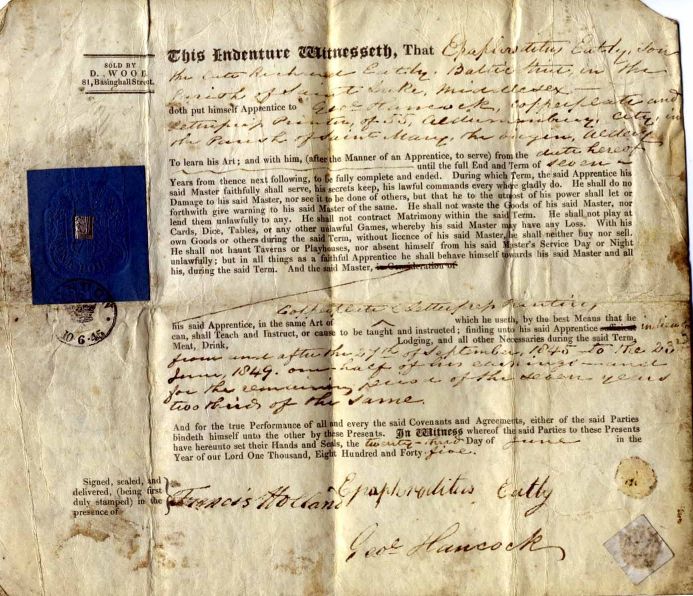 SOLD BY
D. WOOD
81, Basinghall Street.
This Indenture Witnesseth, That Epaphroditus Eatly, son
the late Richard Eatly, Baltic Street in the
Parish of Saint Luke, Middlesex
doth put himself Apprentice to Geo. Hancock, Copperplate and
Letterpress Printer, of 55, Aldermanbury, City, in
the Parish of Saint Mary, the Virgin, Alderm
To learn his Art; and with him, (after the Manner of an Apprentice, to serve) from the date hereof
until the full End and Term of seven
Years from thence next following, to be fully complete and ended. During which Term, the said Apprentice his
said Master faithfully shall serve, his secrets keep, his lawful commands every where gladly do. He shall do no
Damage to his said Master, nor see it to be done of others, but that he to the utmost of his power shall let or
forthwith give warning to his said Master of the same. He shall not waste the Goods of his said Master, nor
lend them unlawfully to any. He shall not contract Matrimony within the said Term. He shall not play at
Cards, Dice, Tables, or any other unlawful Games, whereby his said Master may have any Loss. With his
own Goods or others during the said Term, without licence of his said Master, he shall neither buy nor sell.
He shall not haunt Taverns or Playhouses, nor absent himself from his said Master's Service Day or Night
unlawfully; but in all things as a faithful Apprentice he shall behave himself towards his said Master and all
his, during the said Term. And the said Master, in Consideration of
Copperplate & Letterpress printing
his said Apprentice, in the same Art of which he useth, by the best Means that he
can, shall Teach and Instruct, or cause to be taught and instructed; finding unto his said Apprentice sufficient in lieu of
Meat, Drink, Lodging, and all other Necessaries during the said Term,
from and after the 29th of September, 1845 to the 23d
June, 1849. one half of his earnings and
for the remaining period of the seven years
two thirds of the same.
And for the true Performance of all and every the said Covenants and Agreements, either of the said Parties
bindeth himself unto the other by these Presents. In Witness whereof the said Parties to these Presents
have hereunto set their Hands and Seals, the twenty third Day of June in the
Year of our Lord One Thousand, Eight Hundred and Forty five.
Signed, sealed, and
delivered, (being first
duly stamped) in the
presence of
Francis Holland
Epaphroditus Eatly
Geo. Hancock
10·6·45